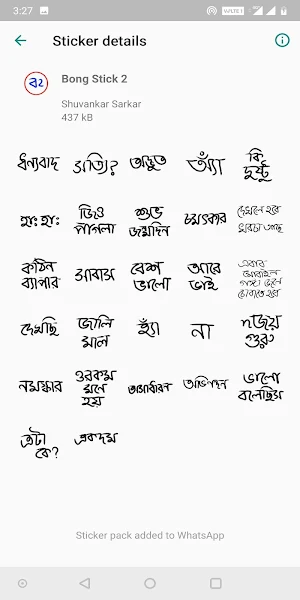 3:27
VoLTE
Sticker details
ব২
Bong Stick 2
Shuvankar Sarkar
437 kB
ধন্যবাদ সত্যি? অদ্ভুত অ্যাঁ কি
দুষ্টু
হাঃ হাঃ জিও
পাগলা শুভ
জন্মদিন চমৎকার
কঠিন
ব্যাপার সাবাস বেশ
ভালো আরে
ভাই
দেখছি জালি
মাল হ্যাঁ না জয়
গুরু
নমস্কার ওরকম
মনে
হয় অসাধারণ অভিনন্দন ভালো
বলেছিস
এটা
কে? একদম
Sticker pack added to WhatsApp